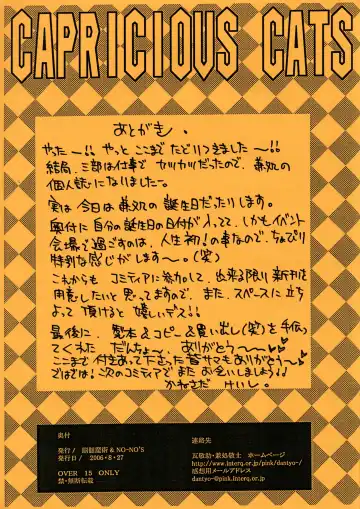 CAPRICIOUS CATS
あとがき、
やったー!! やっと ここまで たどりつきました〜!!
結局、三部は仕事で セツセツだったので、兼処の
個人誌になりましたー。
実は 今日は 兼処の 誕生日だったりします。
奥付に 自分の誕生日の日付が 入ってて、しかもイベント
会場で過ごすのは、人生初!の事なので、ちょぴり
特別な感じがします〜。(笑)
これからも コミティアに参加して、出来る限り 新刊を
用意したいと 思ってますので、また、スペースに立ち
よって 頂けると 嬉しいデス!!
最後に、製本&コピー&買い出し(笑)を手伝っ
てくれた だんちょー、ありがとう〜♥♥
ここまで 付きあって下さった 皆サマも ありがとう〜♥
ではでは!次のコミティアで また お会いしましょう!!
かねさだ けいし。
奥付
発行/ 銀髭魔術 & NO-NO'S
発行日/ 2006・8・27
OVER 15 ONLY
禁・無断転載
連絡先
瓦敬助・兼処敬士 ホームページ
http://www.interq.or.jp/pink/dantyo-/
感想用メールアドレス
dantyo-@pink.interq.or.jp